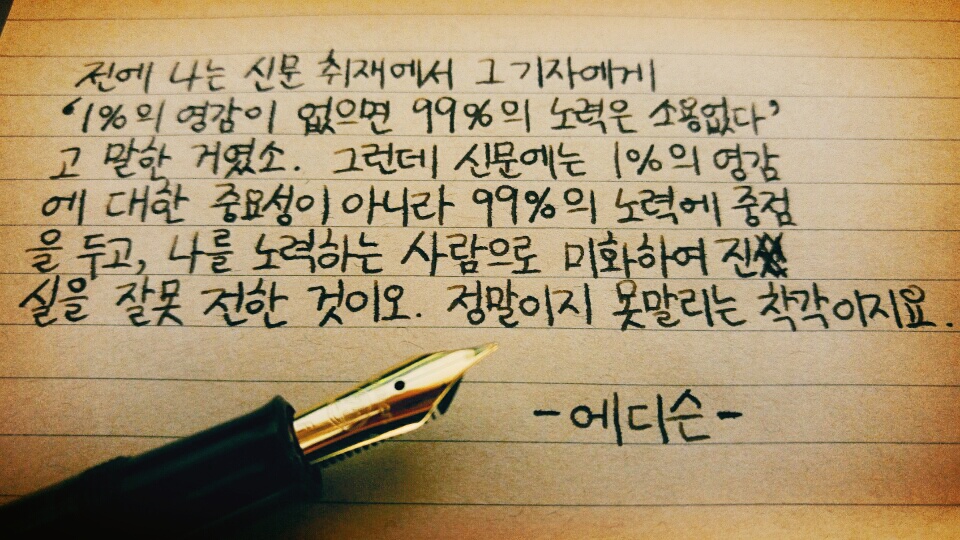 전에 나는 신문 취재에서 그 기자에게
'1%의 영감이 없으면 99%의 노력은 소용없다'
고 말한 거였소. 그런데 신문에는 1%의 영감
에 대한 중요성이 아니라 99%의 노력에 중점
을 두고, 나를 노력하는 사람으로 미화하여 진
실을 잘못 전한 것이오. 정말이지 못말리는 착각이지요.
-에디슨-